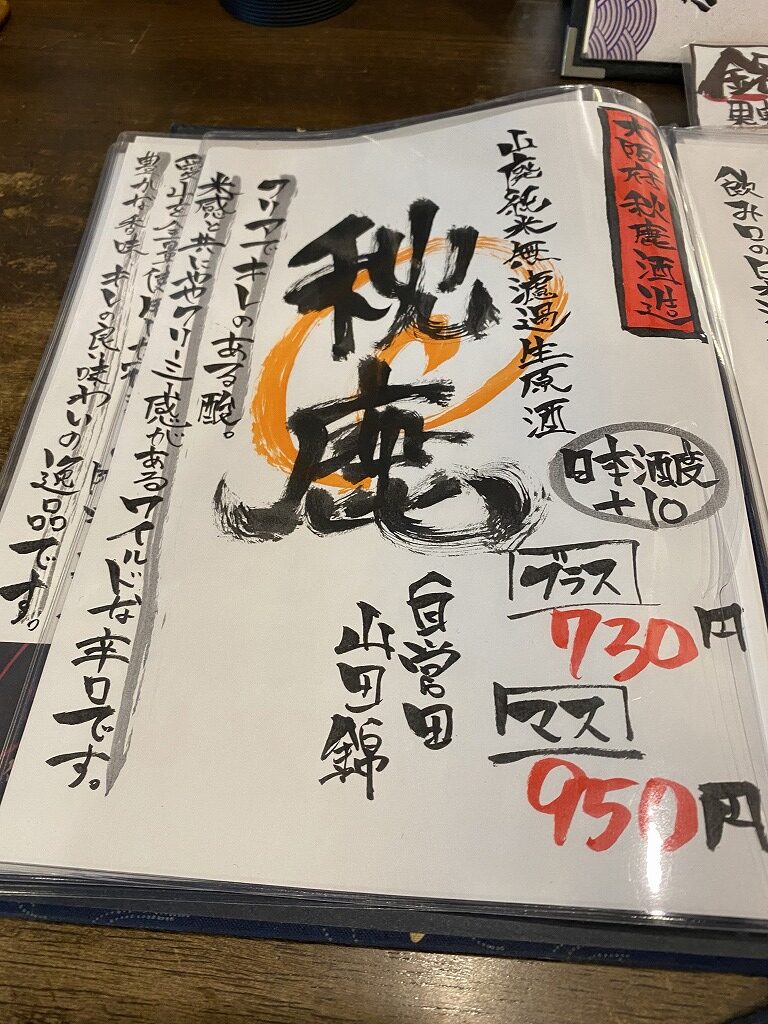 大阪府秋鹿酒造。
山廃純米無濾過生原酒
秋鹿
日本酒度
+10
グラス
730円
マス
950円
自営田
山田錦
クリアでキレのある酸。
米感と共にややクリーミー感があるワイルドな辛口です。
豊かな香味 キレの良い味わいの逸品です。